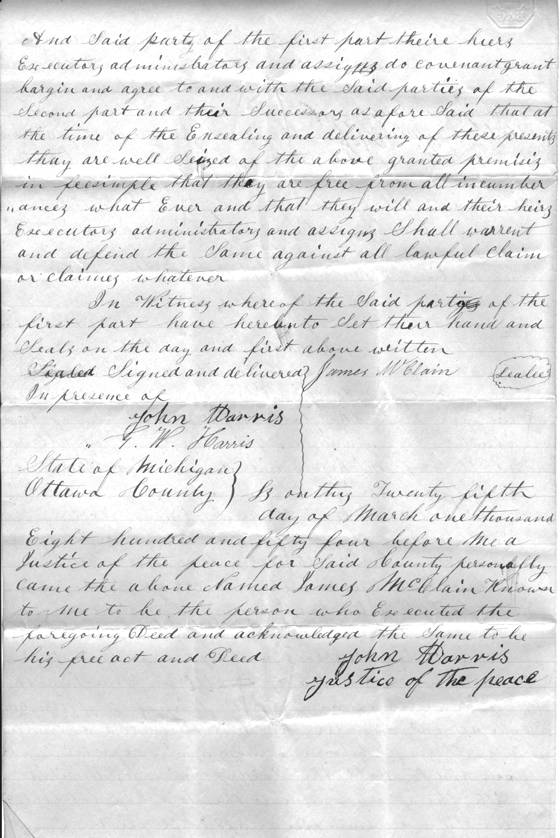 And Said party of the first part theire hierz
Executors administrators and assigns do covenant grant
bargin and agree to and with the Said parties of the
Second part and their Successors as afore Said that at
the time of the Ensealing and delivering of these presents
thay are well Seized of the above granted premisiz
in feesimple that they are free from all incumber
„ancez what Ever and that they will and their heirs
Executors administrators and assigns Shall warrent
and defend the Same against all lawful Claim
or claimes whatever
In Witness whereof the Said parties of the
first part have hereunto Set their hand and
Seals on the day and first above written
Sealed Signed and delivered } James McClain Sealed
In presence of
John Harris
„ T. W. Harris
State of Michigan }
Ottawa County } S on this Twenty fifth
day of March one thousand
Eight hundred and fifty four before me a
Justice of the peace for Said County personally
came the above Named James McClain Known
to me to be the person who Executed the
foregoing Deed and acknowledged the Same to be
his free act and Deed John Harris
Justice of the peace